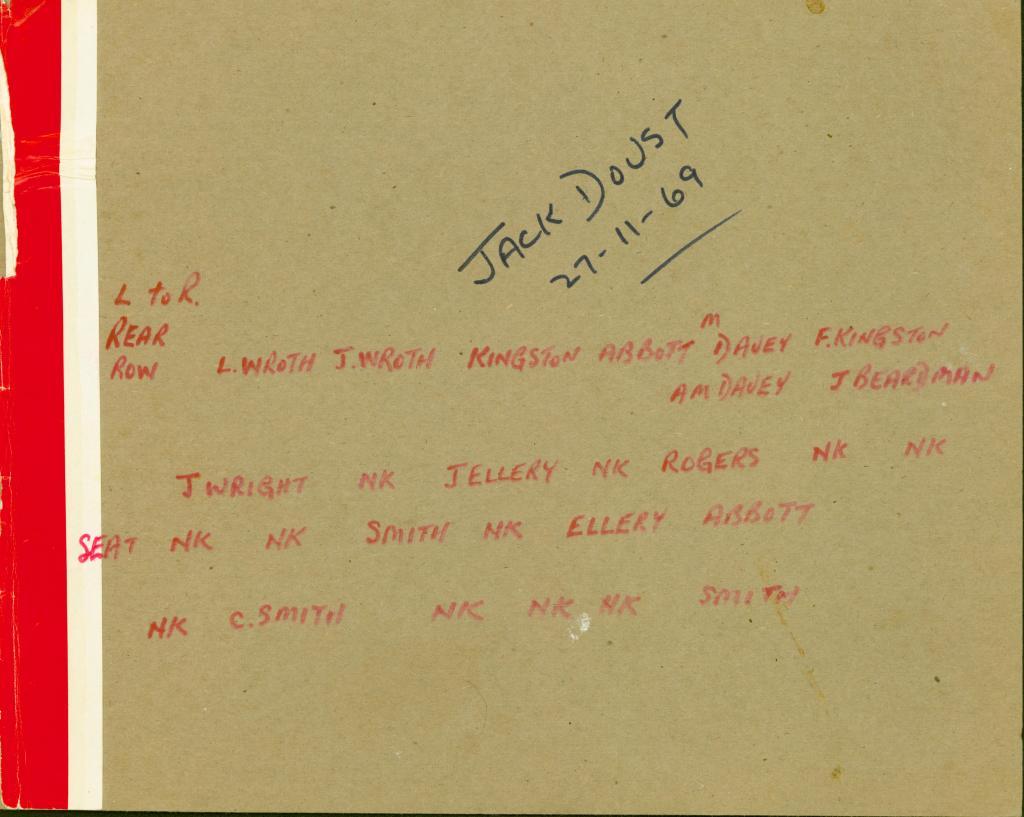 JACK DOUST
27-11-69
L to R.
REAR
ROW L.WROTH J.WROTH KINGSTON ABBOTT M DAVEY F.KINGSTON
AM DAVEY J BEARDMAN
J WRIGHT NK J ELLERY NK ROGERS NK NK
SEAT NK NK SMITH NK ELLERY ABBOTT
NK C.SMITH NK NK NK SMITH